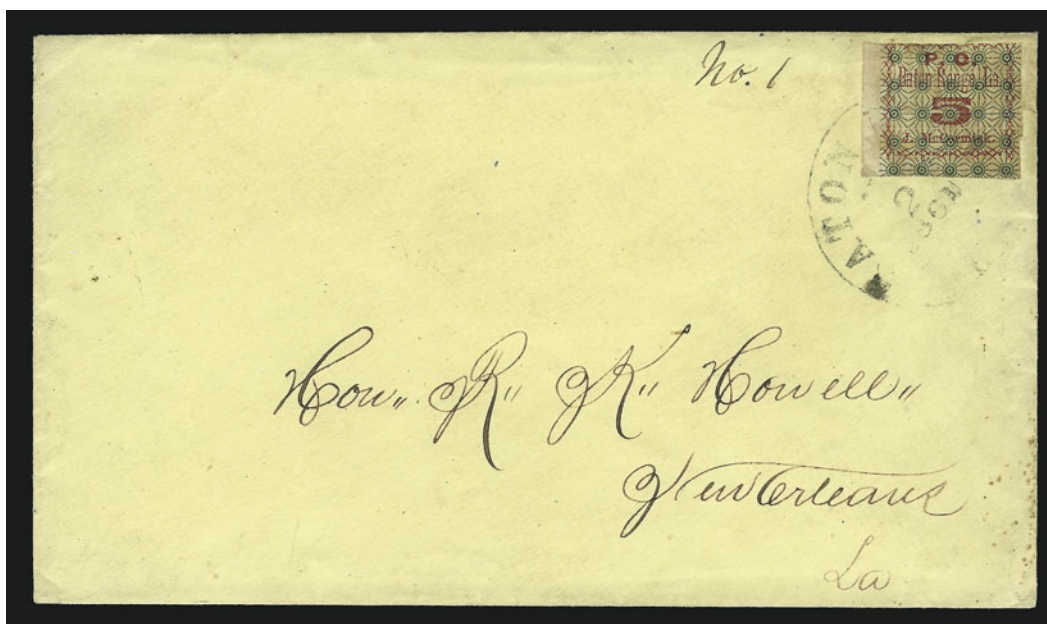 No. 1
P. O.
Baton Rouge, La.
5
J. McCormick.
BATON
Hon. R. K. Howell
New Orleans
La